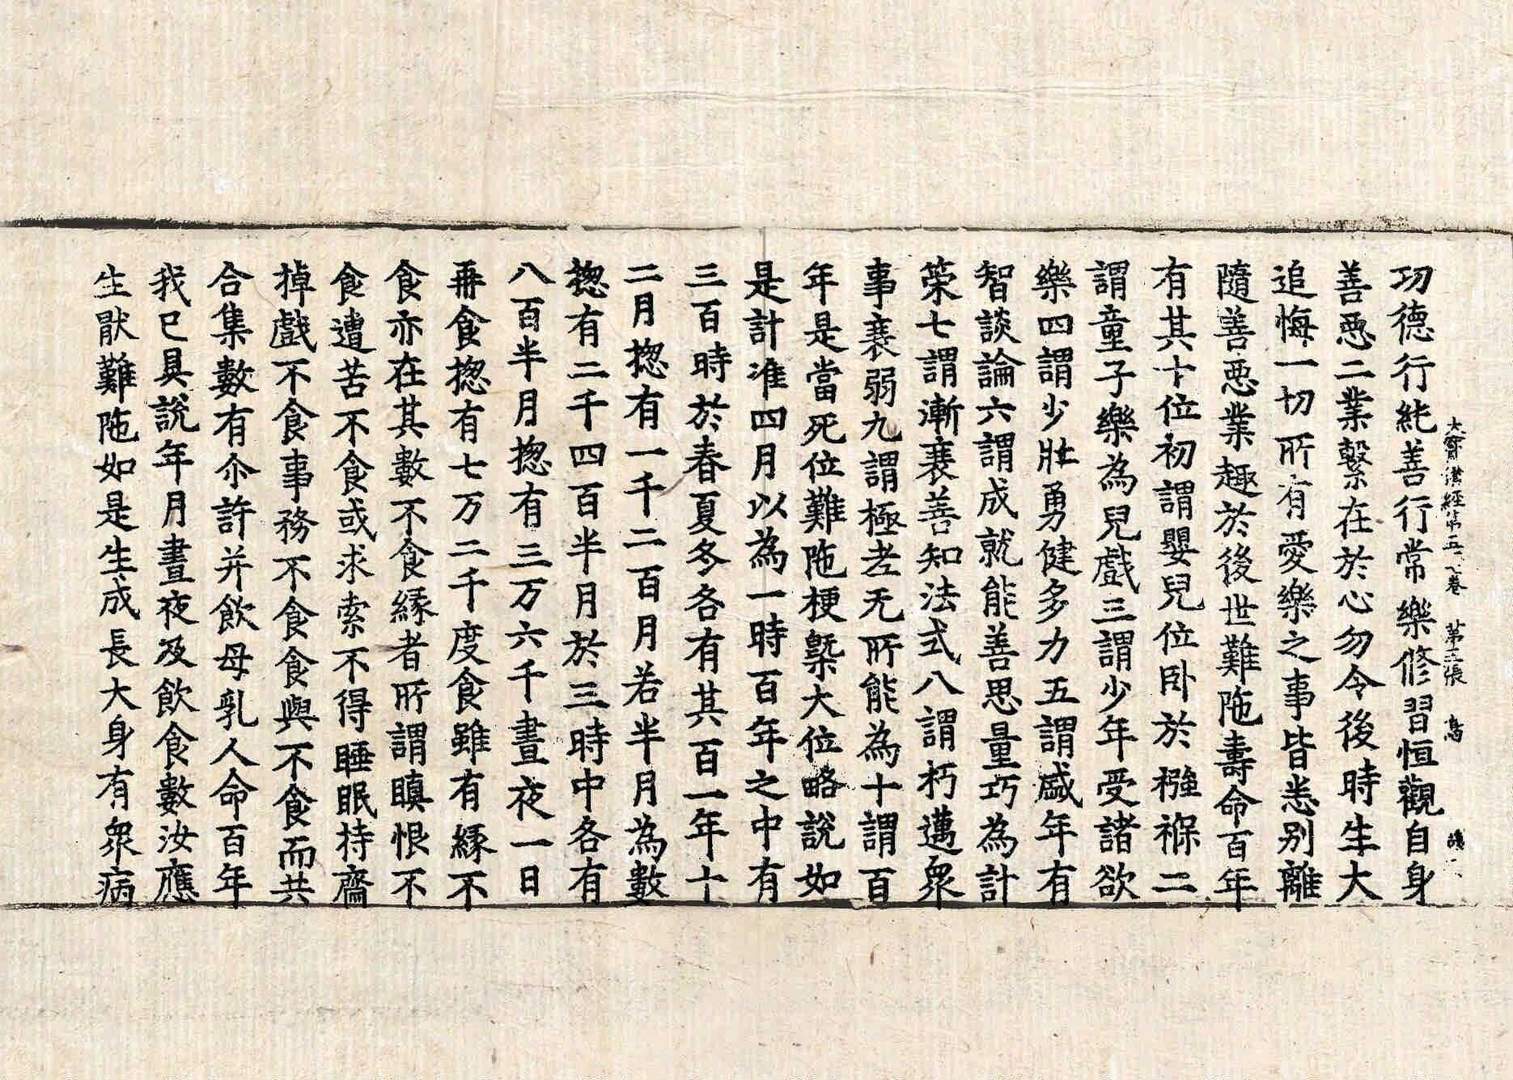 大寳積經第五 卷 第三張 鳥
功德行純善行常樂修習恒觀自身
善惡二業繫在於心勿令後時生大
追悔一切所有愛樂之事皆悉別離
隨善惡業趣於後世難陁壽命百年
有其十位初謂嬰兒位卧於襁褓二
謂童子樂為兒戲三謂少年受諸欲
樂四謂少壯勇健多力五謂盛年有
智談論六謂成就能善思量巧為計
策七謂漸衰善知法式八謂朽邁衆
事衰弱九謂極老无所能為十謂百
年是當死位難陁梗槩大位略說如
是計准四月以為一時百年之中有
三百時於春夏冬各有其百一年十
二月揔有一千二百月若半月為數
揔有二千四百半月於三時中各有
八百半月揔有三万六千晝夜一日
再食揔有七万二千度食雖有緣不
食亦在其數不食緣者所謂瞋恨不
食遭苦不食或求索不得睡眠持齋
掉戲不食事務不食食與不食而共
合集數有尒許并飲母乳人命百年
我已具說年月晝夜及飲食數汝應
生猒難陁如是生成長大身有衆病